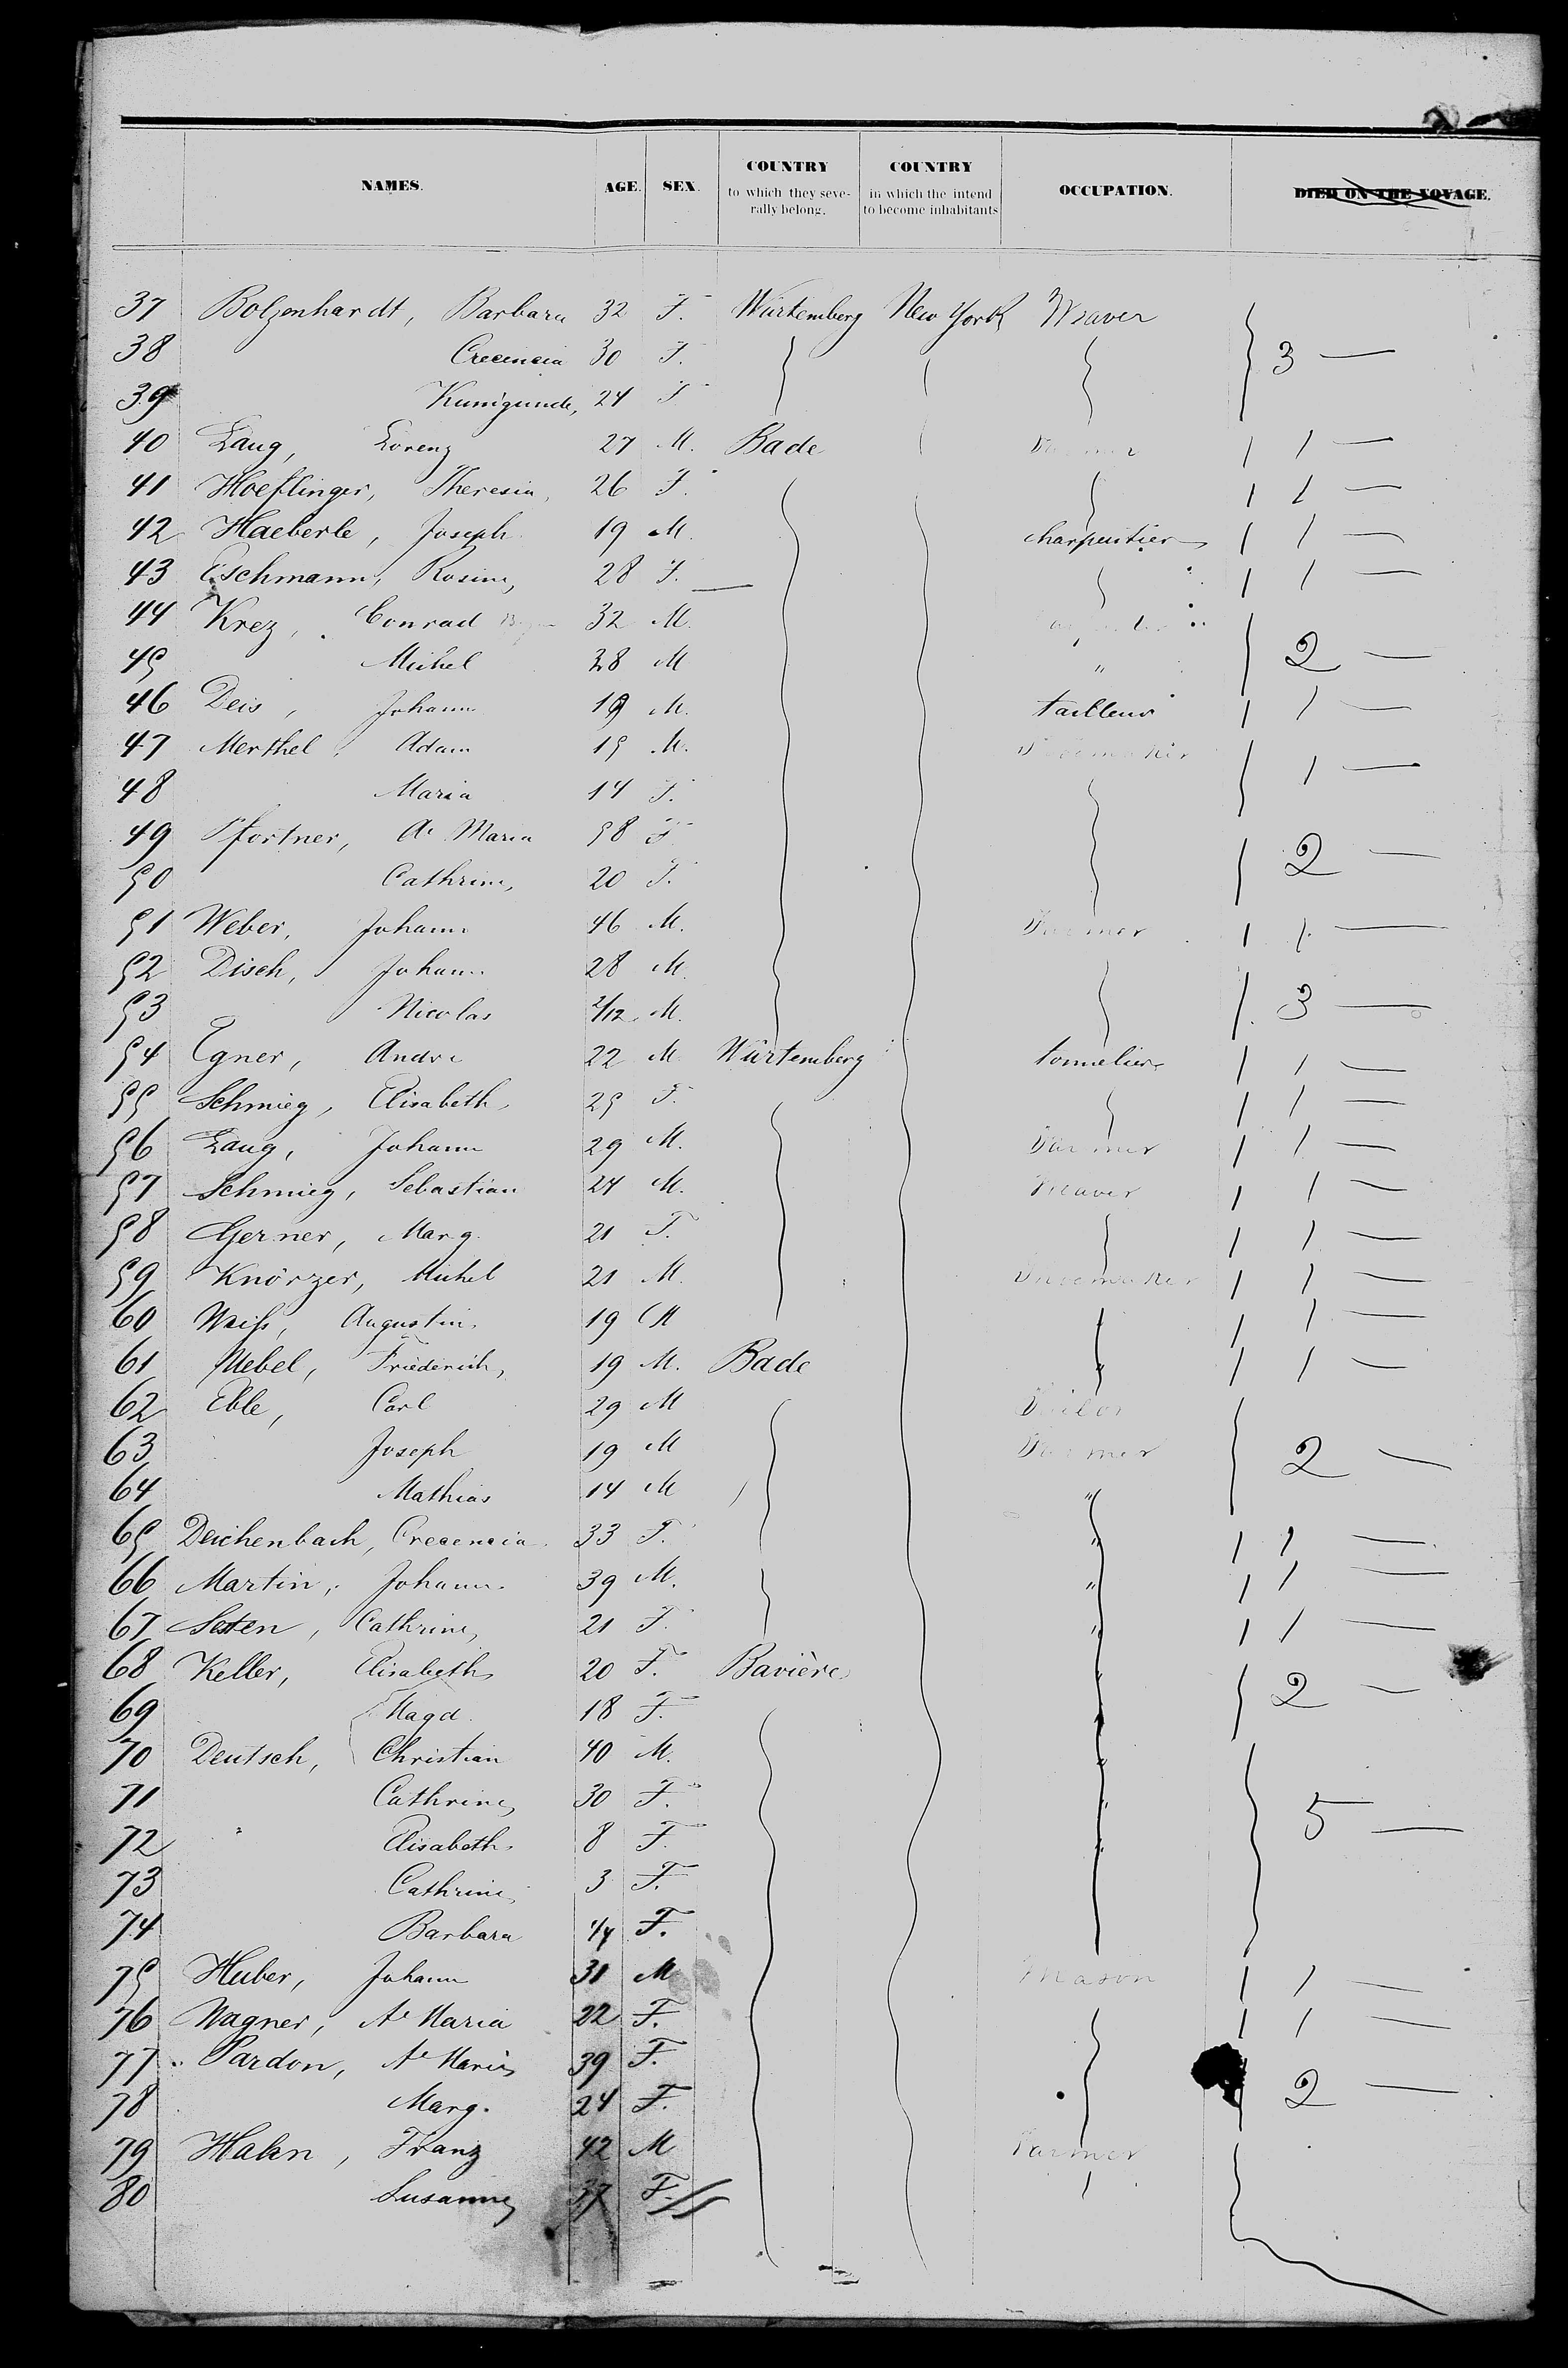 NAMES. AGE. SEX. COUNTRY to which they severally belong. COUNTRY in which the intend to become inhabitants OCCUPATION. DIED ON THE VOYAGE.
37 Bolzenhardt, Barbara 32 F. Würtemberg New York Weaver
38 Crecencia 30 F. 3 —
39 Kunigunde, 24 F
40 Laug, Lorenz 27 M. Bade Farmer 1 1 —
41 Hoeflinger, Theresia, 26 F. 1 1 —
42 Haeberle, Joseph 19 M. charpentier 1 1 —
43 Eschmann, Rosine, 28 F. 1 1 —
44 Krez, Conrad 32 M.
45 Michel 28 M " 2 —
46 Deis, Johann 19 M. tailleur 1 1 —
47 Merthel, Adam 15 M. Shoemaker
48 Maria 14 F. 1 —
49 Pfortner, Ae Maria 58 F
50 Cathrine, 20 F. 2 —
51 Weber, Johann 46 M. Farmer 1 1. —
52 Disch, Johann 28 M.
53 Nicolas 2/12 M. 3 —
54 Egner, Andre 22 M Würtemberg tonnelier 1 1 —
55 Schmieg, Elisabeth, 25 F. 1 1 —
56 Laug, Johann 29 M. Farmer 1 1 —
57 Schmieg, Sebastian 24 M. Weaver 1 1 —
58 Gerner, Marg. 21 F. 1 1 —
59 Knörzer, Michel 21 M. Shoemaker 1 1 —
60 Weiss, Augustin. 19 M 1 1 —
61 Mebel, Friederich, 19 M. Bade " 1 1 —
62 Eble, Carl 29 M Tailor
63 Joseph 19 M Farmer 2 —
64 Mathias 14 M "
65 Deichenbach, Crecencia 33 F. " 1 1 —
66 Martin, Johann. 39 M. " 1 1 —
67 Seten, Cathrine, 21 F. " 1 1 —
68 Keller, Elisabeth 20 F. Bavière " 2 —
69 Magd. 18 F. "
70 Deutsch, Christian 40 M. "
71 Cathrine, 30 F. " 5 —
72 " Elisabeth. 8 F. "
73 Cathrine, 3 F.
74 Barbara 1/4 F.
75 Huber, Johann 31 M Mason 1 1 —
76 Wagner, Ae Maria 22 F. 1 1 —
77 Pardon, Ae Maria 39 F.
78 Marg. 24 F. 2 —
79 Hahn, Franz 42 M Farmer
80 Susanne, 37 F.